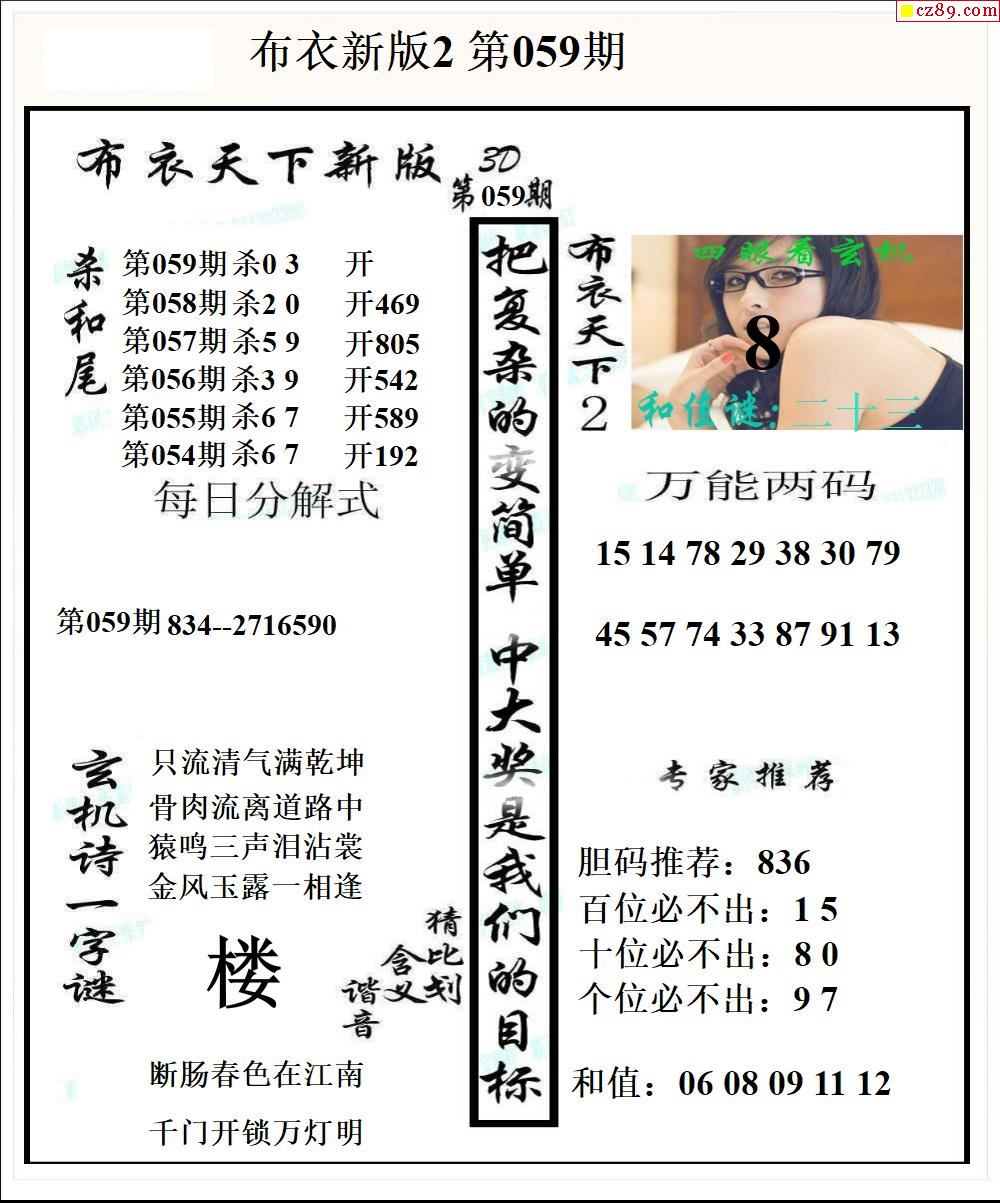 cz89.com
布衣新版2 第059期
布衣天下新版 3D
第059期
杀和尾
第059期 杀0 3 开
第058期 杀2 0 开469
第057期 杀5 9 开805
第056期 杀3 9 开542
第055期 杀6 7 开589
第054期 杀6 7 开192
每日分解式
第059期 834--2716590
玄机诗一字谜
只流清气满乾坤
骨肉流离道路中
猿鸣三声泪沾裳
金风玉露一相逢
楼
猜比划
含义
谐音
断肠春色在江南
千门开锁万灯明
把复杂的变简单 中大奖是我们的目标
布衣天下2
四眼看玄机
8
和值谜:二十三
万能两码
15 14 78 29 38 30 79
45 57 74 33 87 91 13
专家推荐
胆码推荐：836
百位必不出：1 5
十位必不出：8 0
个位必不出：9 7
和值：06 08 09 11 12